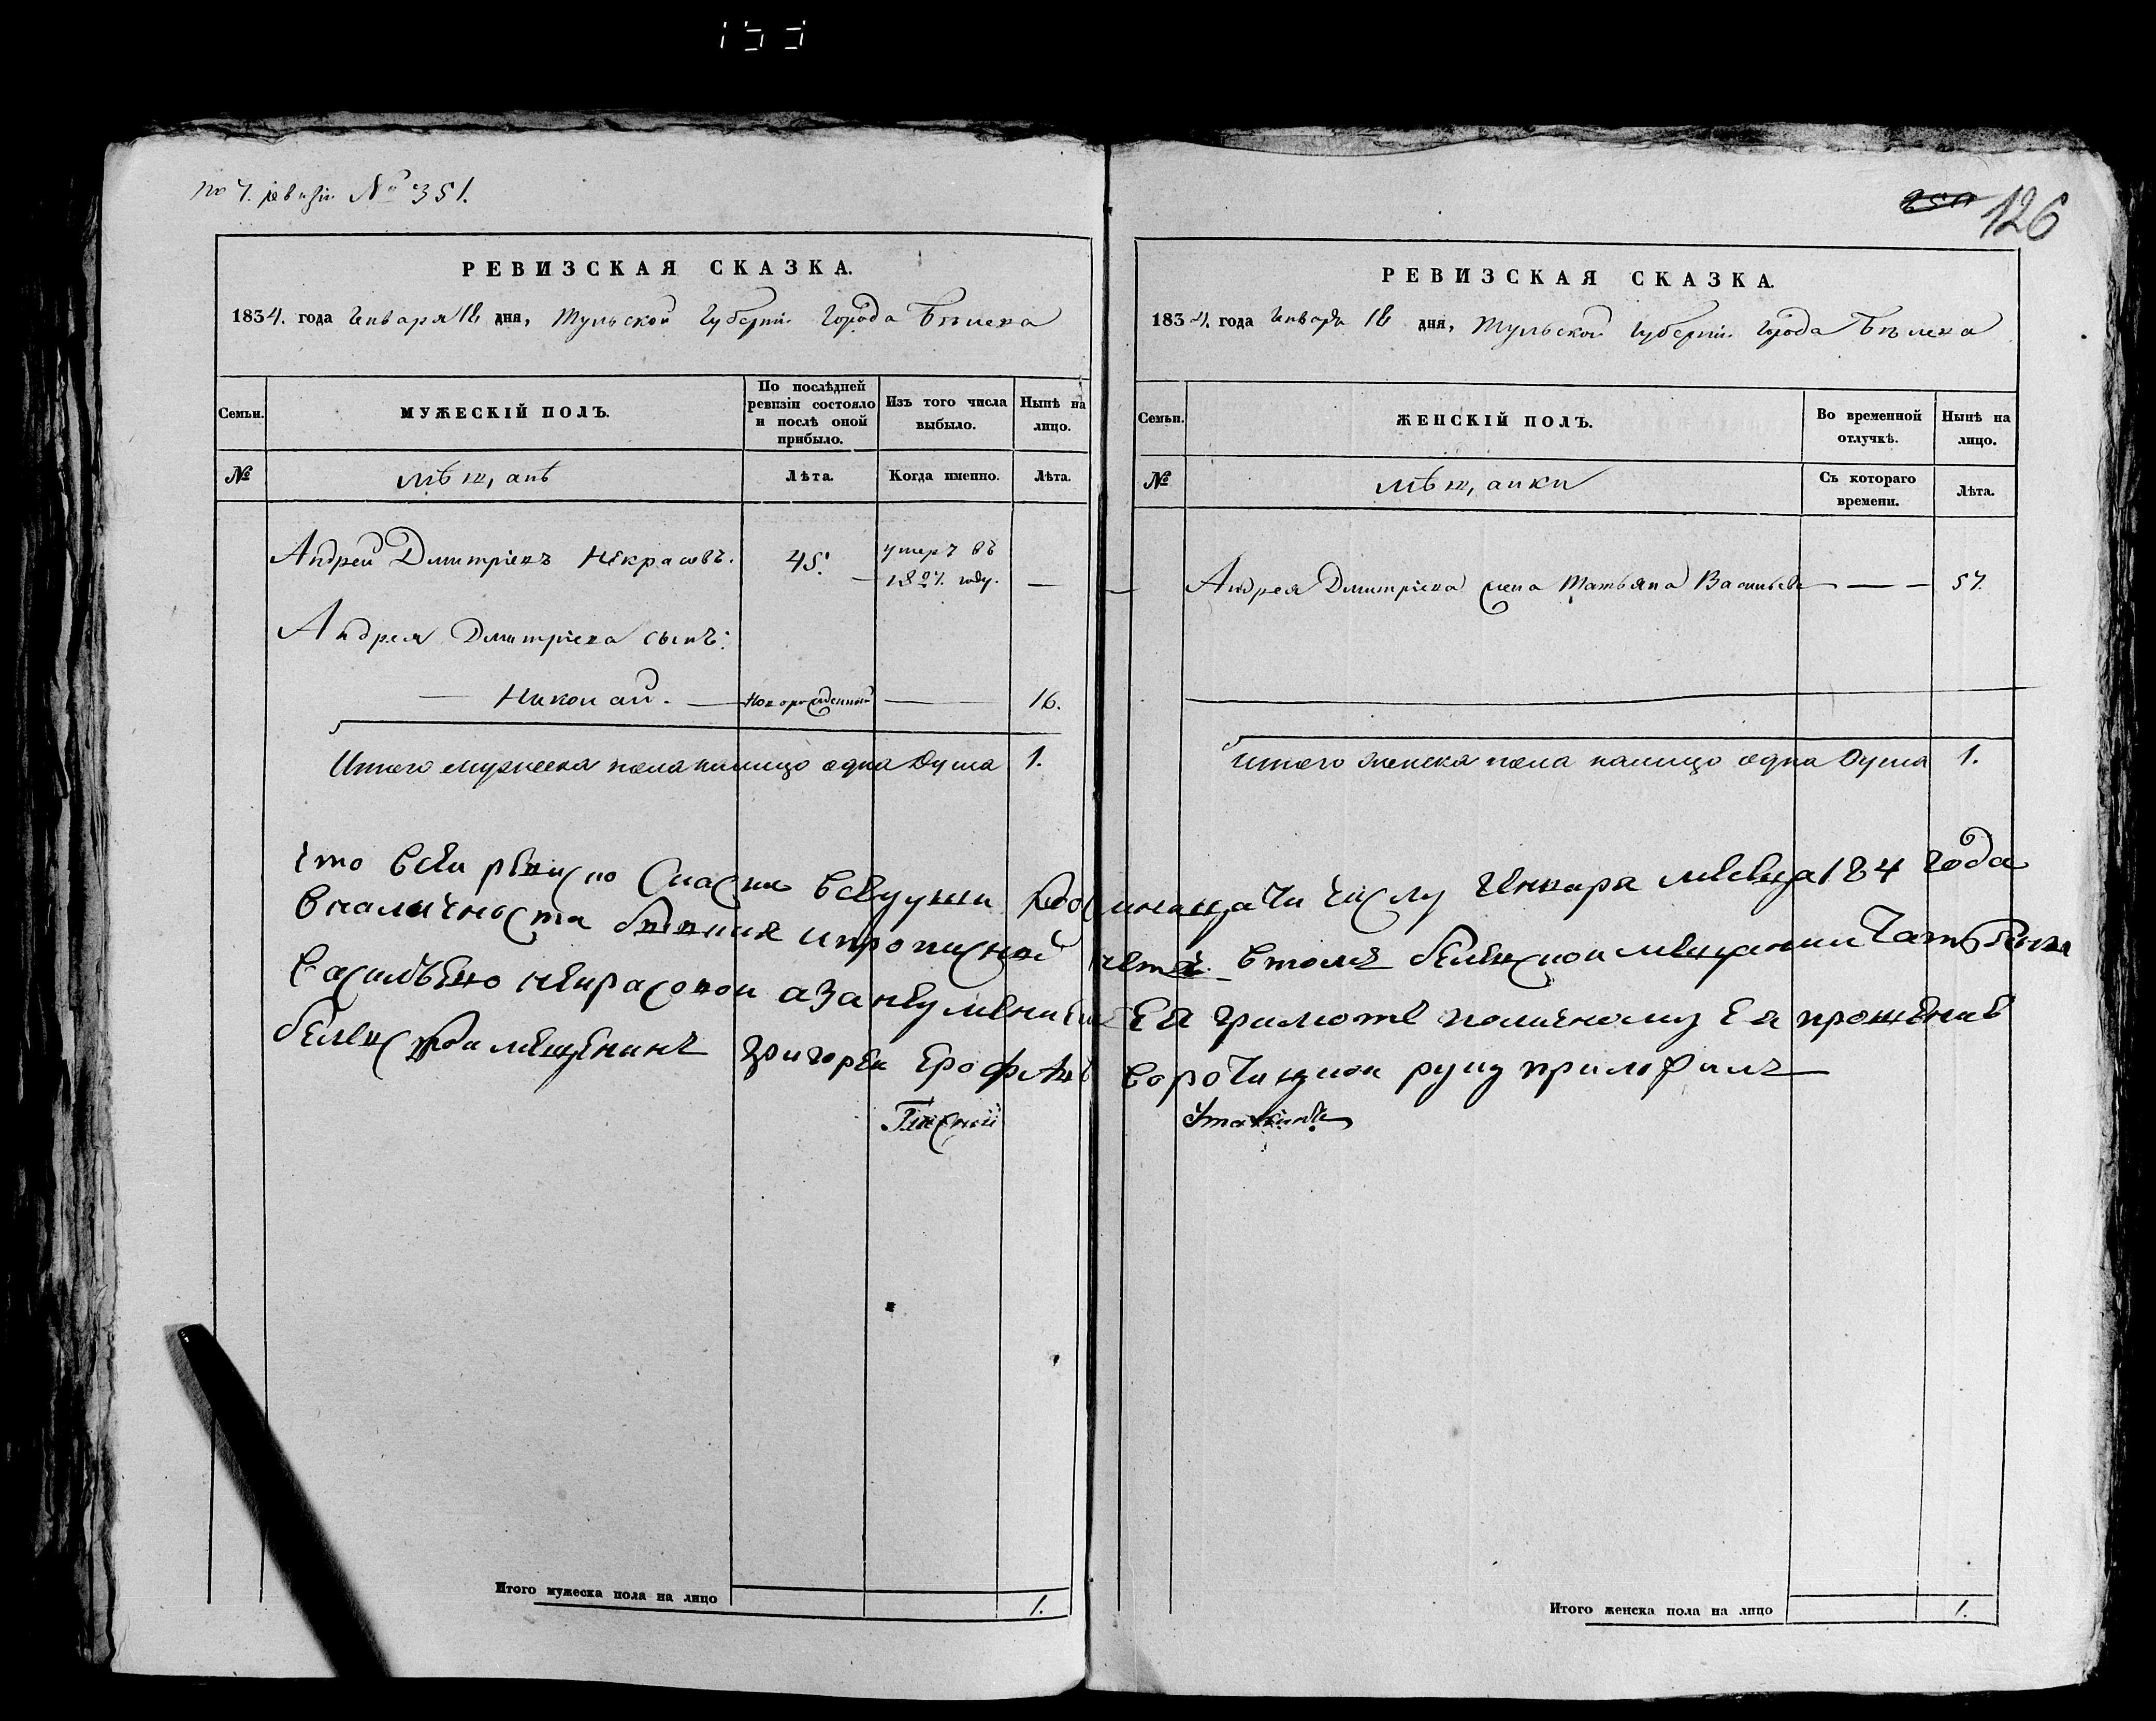 по 7. ревизіи № 351.
126
РЕВИЗСКАЯ СКАЗКА.
1834. года Генваря 18 дня, Тульской Губерніи Города Бѣлева
Семьи.
МУЖЕСКІЙ ПОЛЪ.
По послѣдней ревизіи состояло и послѣ оной прибыло.
Изъ того числа выбыло.
Нынѣ на лицо.
№
мѣщанъ
Лѣта.
Когда именно.
Лѣта.
Андрей Дмитріевъ Некрасовъ. 45. умеръ въ
1827. году. —
Андрея Дмитріева сынъ:
— Николай. — Новорожденной — 16.
Итого мужеска пола налицо одна душа 1.
Итого мужеска пола на лицо 1.
РЕВИЗСКАЯ СКАЗКА.
1834. года Генваря 18 дня, Тульской Губерніи Города Бѣлева
Семьи.
ЖЕНСКІЙ ПОЛЪ.
Во временной отлучкѣ.
Нынѣ на лицо.
№
мѣщанки
Съ котораго времени.
Лѣта.
Андрея Дмитріева жена Татьяна Васильева — — 57.
Итого женска пола налицо одна душа 1.
что всеи ревиско Сласки вседуши генваря месеца 184 года
вналичности бывшия ипрописной втомъ белевскои мещанки Татьяна
василъево некрасовои азанеумениемъ ея грамоте поличному ея прошению
белевской мещенинъ григореи ерофеевъ воротицкои руку приложилъ
Гласной
Итого женска пола на лицо 1.